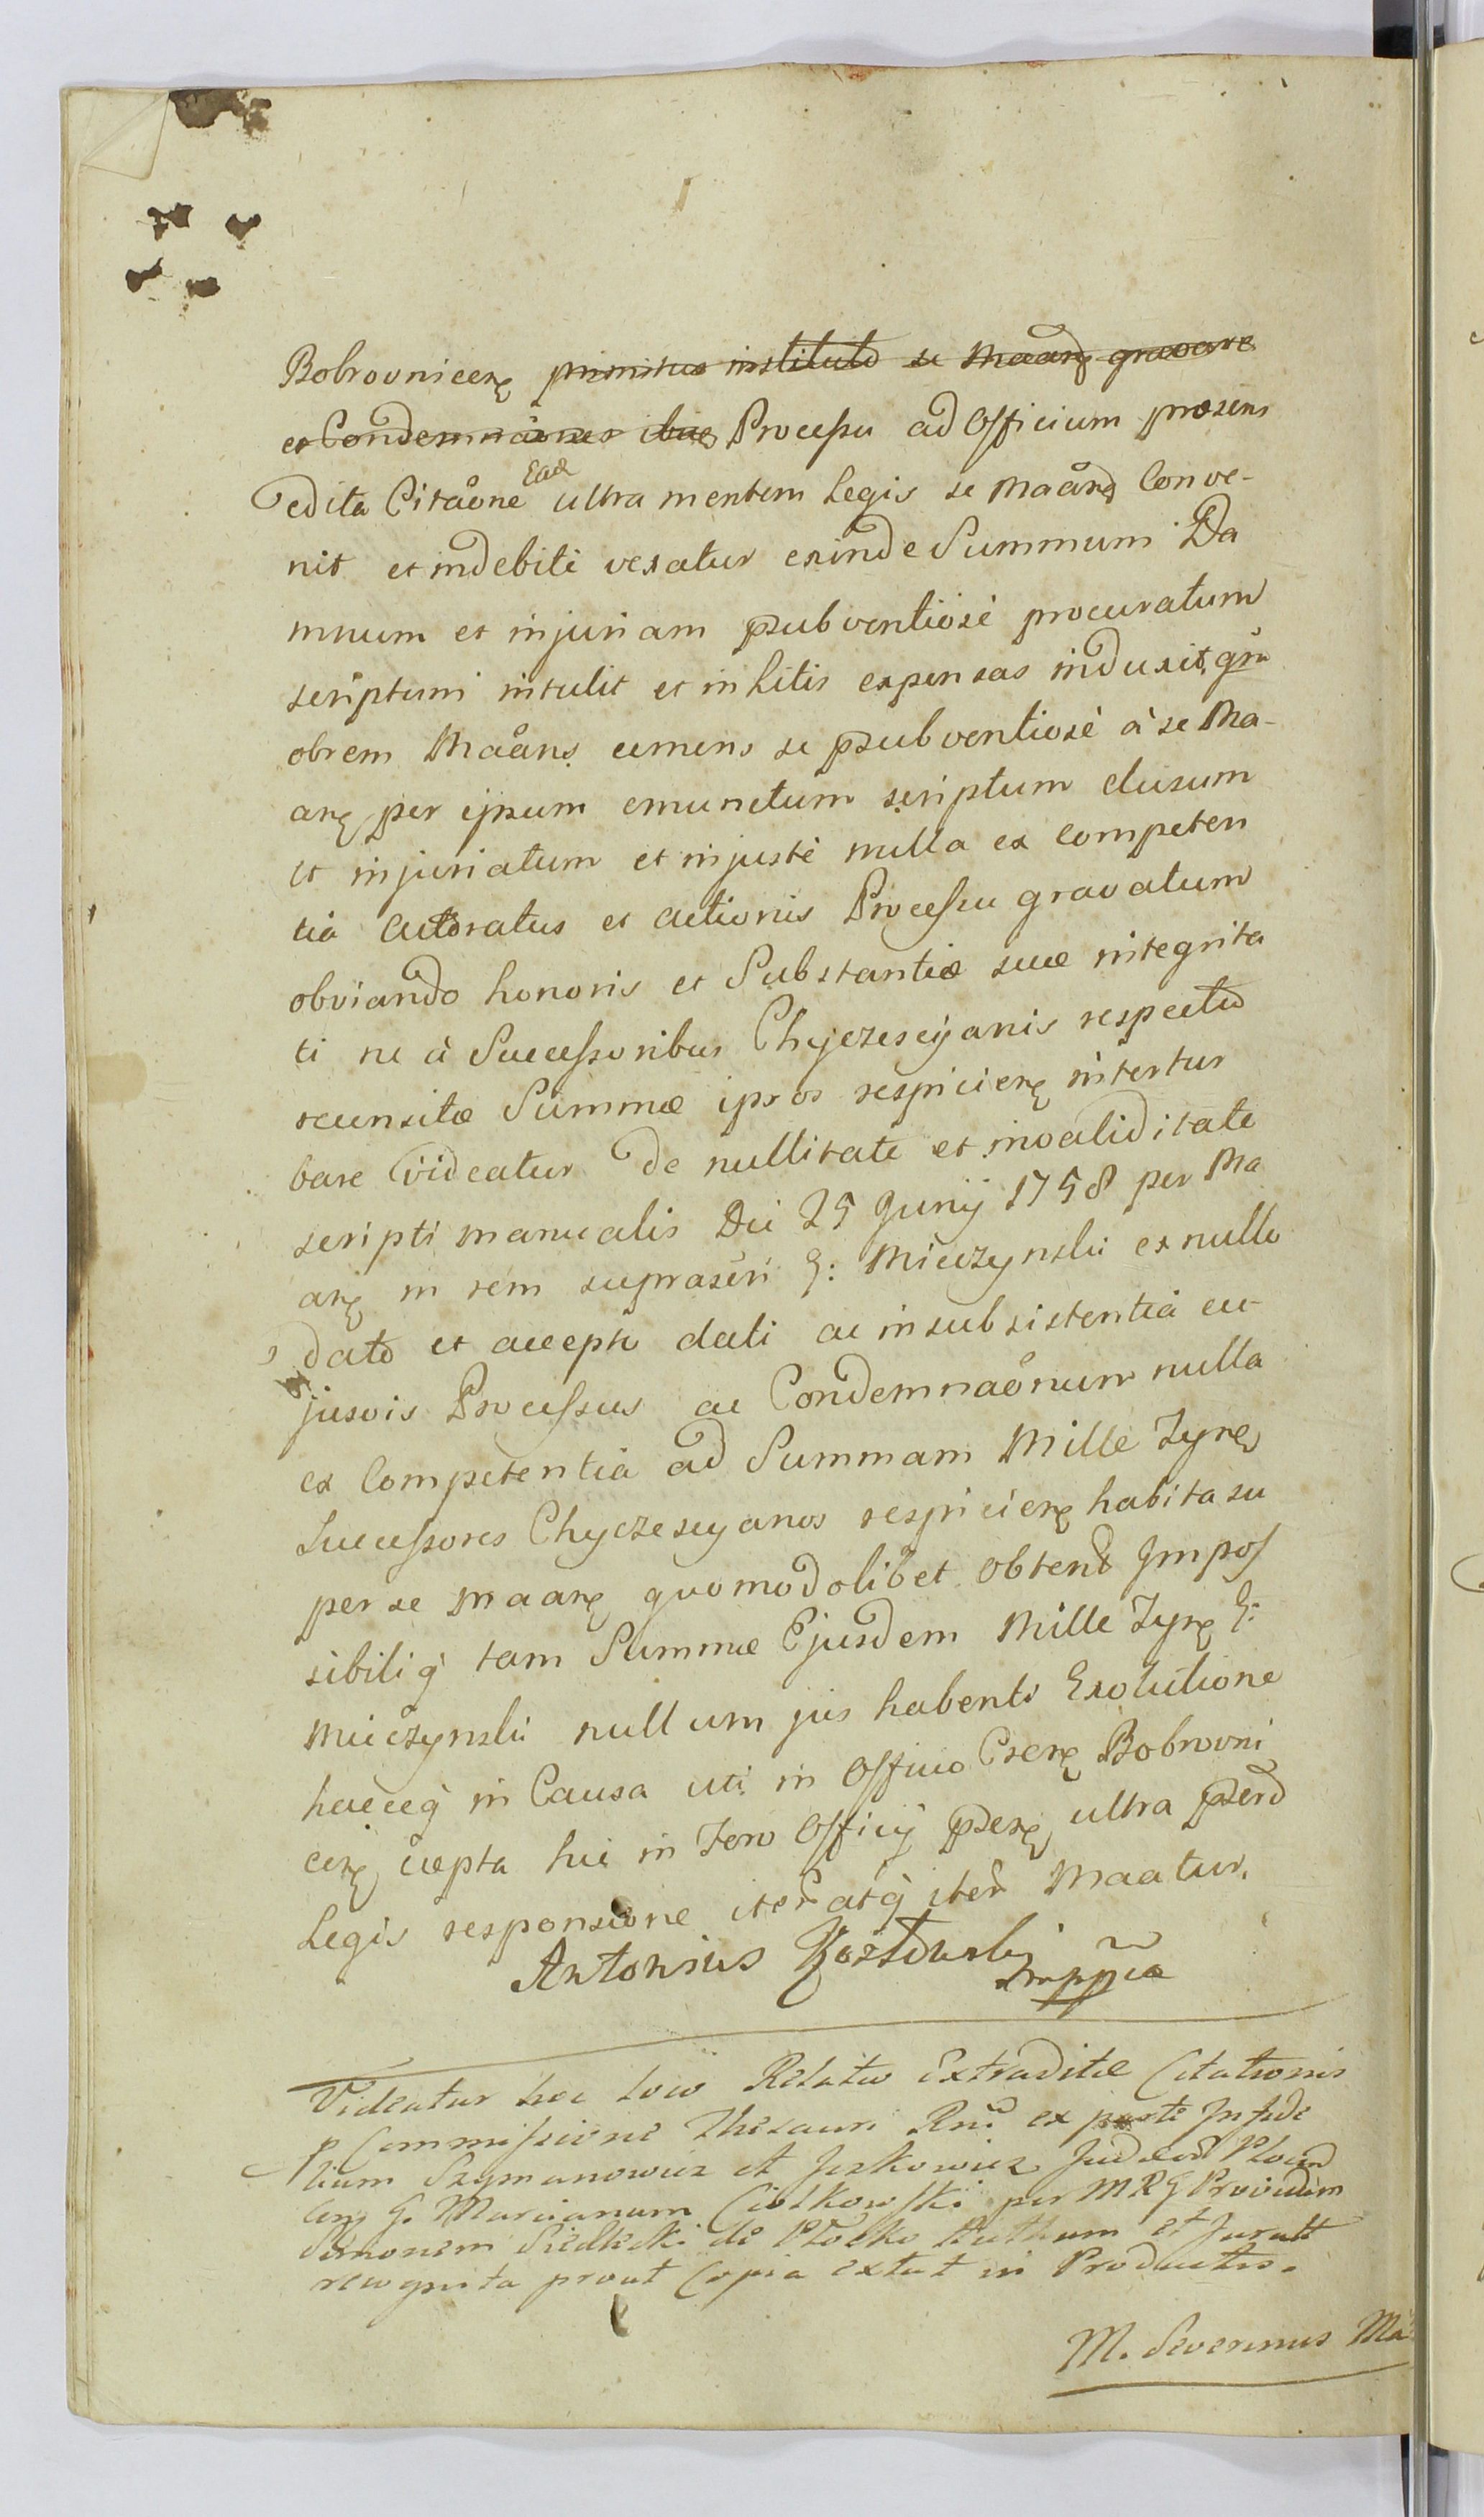 Bobrovnicens primitus instituto se Maand gravare
et Condemnaones Processu ad Officium præsens
edita Citaone Ead ultra mentem Legis se Maand Conve-
nit et indebite vexatur exinde Summum Da
mnum et injuriam psubventiose procuratum
scriptum intulit et in Litis expensas induxit, qua
obrem Maans eumens se psubventiosè à se Ma-
an per ipsum emunctum scriptum elusum
et injuriatum et injustè nulla ex competen
tia actoratus et actionis Processu gravatum
obviando honoris et Substantiæ suæ integrita
ti ne à Successoribus Chyczescyanis respectu
recensitæ Summæ ipsos respicien intertur
bare videatur de nullitate et invaliditate
scripti manualis Die 25 Junij 1758 per Ma
an in rem suprascri G: Mieczynski ex nullo
dato et accepto dati ac insubsistentia cu-
jusvis Processus ac Condemnaonum nulla
ex Competentia ad Summam Mille Tyn
Successores Chyczescyanos respicien habita su
per se maan quomodolibet obtent Impos
sibiliq tam Summæ Ejusdem Mille Tyn G:
Mieczynski nullum jus habenti Exolutione
hæcceq in Causa uti in Officio Csen Bobrovni
cen cæpta hic in Foro Officij psen ultra psend
Legis responsione iter atq iter Maatur.
Antonius Kozłowski mppia
Videatur hoc loco Relatio Extraditæ Citationis
p Commissione Thesauri Rni ex parte Infide
lium Szymanowicz et Jerkowicz Judæor Plocen
G. Marcianum Ciołkowski per MRG Providum
Simonem Siedlecki de Płocko Auth um et Juratt
recognita prout Copia extat in Productis.
M. Severinus Ma